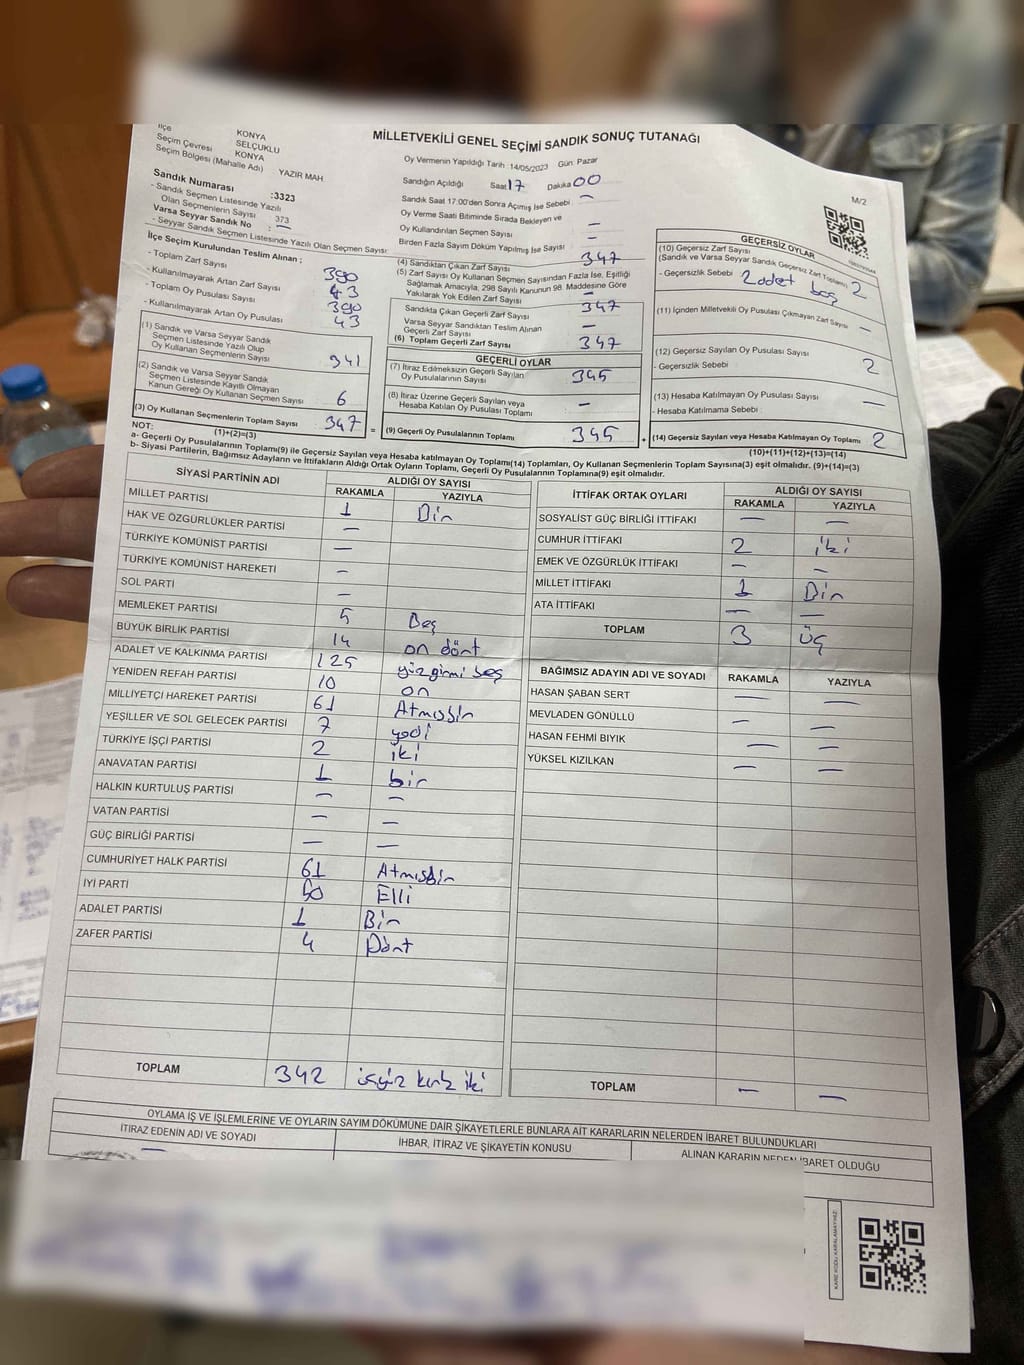 MİLLETVEKİLİ GENEL SEÇİMİ SANDIK SONUÇ TUTANAĞI
İlçe
KONYA
Seçim Çevresi SELÇUKLU
Seçim Bölgesi (Mahalle Adı) KONYA YAZIR MAH
Sandık Numarası :3323
- Sandık Seçmen Listesinde Yazılı
Olan Seçmenlerin Sayısı 373
Varsa Seyyar Sandık No : —
- Seyyar Sandık Seçmen Listesinde Yazılı Olan Seçmen Sayısı:
İlçe Seçim Kurulundan Teslim Alınan ;
- Toplam Zarf Sayısı 390
- Kullanılmayarak Artan Zarf Sayısı 43
- Toplam Oy Pusulası Sayısı 390
- Kullanılmayarak Artan Oy Pusulası 43
(1) Sandık ve Varsa Seyyar Sandık
Seçmen Listesinde Yazılı Olup
Oy Kullanan Seçmenlerin Sayısı 341
(2) Sandık ve Varsa Seyyar Sandık
Seçmen Listesinde Kayıtlı Olmayan
Kanun Gereği Oy Kullanan Seçmen Sayısı 6
(3) Oy Kullanan Seçmenlerin Toplam Sayısı 347
(1)+(2)=(3)
Oy Vermenin Yapıldığı Tarih :14/05/2023 Gün: Pazar
Sandığın Açıldığı Saat 17 Dakika 00
Sandık Saat 17:00'den Sonra Açımış İse Sebebi : —
Oy Verme Saati Bitiminde Sırada Bekleyen ve
Oy Kullandırılan Seçmen Sayısı : —
Birden Fazla Sayım Döküm Yapılmış İse Sayısı : —
(4) Sandıktan Çıkan Zarf Sayısı 347
(5) Zarf Sayısı Oy Kullanan Seçmen Sayısından Fazla İse, Eşitliği
Sağlamak Amacıyla, 298 Sayılı Kanunun 98. Maddesine Göre
Yakılarak Yok Edilen Zarf Sayısı —
Sandıkta Çıkan Geçerli Zarf Sayısı 347
Varsa Seyyar Sandıktan Teslim Alınan
Geçerli Zarf Sayısı —
(6) Toplam Geçerli Zarf Sayısı 347
GEÇERLİ OYLAR
(7) İtiraz Edilmeksizin Geçerli Sayılan
Oy Pusulalarının Sayısı 345
(8) İtiraz Üzerine Geçerli Sayılan veya
Hesaba Katılan Oy Pusulası Toplamı —
(9) Geçerli Oy Pusulalarının Toplamı 345
M/2
GEÇERSİZ OYLAR
(10) Geçersiz Zarf Sayısı
(Sandık ve Varsa Seyyar Sandık Geçersiz Zarf Toplamı) 2
- Geçersizlik Sebebi : 2 adet boş
(11) İçinden Milletvekili Oy Pusulası Çıkmayan Zarf Sayısı —
(12) Geçersiz Sayılan Oy Pusulası Sayısı 2
- Geçersizlik Sebebi :
(13) Hesaba Katılmayan Oy Pusulası Sayısı —
- Hesaba Katılmama Sebebi :
(14) Geçersiz Sayılan veya Hesaba Katılmayan Oy Toplamı 2
(10)+(11)+(12)+(13)=(14)
NOT:
a- Geçerli Oy Pusulalarının Toplamı(9) ile Geçersiz Sayılan veya Hesaba katılmayan Oy Toplamı(14) Toplamları, Oy Kullanan Seçmenlerin Toplam Sayısına(3) eşit olmalıdır. (9)+(14)=(3)
b- Siyasi Partilerin, Bağımsız Adayların ve İttifakların Aldığı Ortak Oyların Toplamı, Geçerli Oy Pusulalarının Toplamına(9) eşit olmalıdır.
SİYASİ PARTİNİN ADI ALDIĞI OY SAYISI
RAKAMLA YAZIYLA
MİLLET PARTISI 1 Bir
HAK VE ÖZGÜRLÜKLER PARTİSİ —
TÜRKİYE KOMÜNIST PARTİSİ —
TÜRKİYE KOMÜNIST HAREKETI —
SOL PARTI —
MEMLEKET PARTİSİ 5 Beş
BÜYÜK BİRLİK PARTİSİ 14 on dört
ADALET VE KALKINMA PARTİSİ 125 yüzyirmi beş
YENİDEN REFAH PARTİSİ 10 on
MİLLİYETÇİ HAREKET PARTİSİ 61 Atmışbir
YEŞİLLER VE SOL GELECEK PARTİSİ 7 yedi
TÜRKİYE İŞÇİ PARTİSİ 2 iki
ANAVATAN PARTİSİ 1 bir
HALKIN KURTULUŞ PARTİSİ — —
VATAN PARTİSİ — —
GÜÇ BİRLİĞİ PARTİSİ — —
CUMHURİYET HALK PARTİSİ 61 Atmışbir
İYİ PARTİ 50 Elli
ADALET PARTİSİ 1 Bir
ZAFER PARTİSİ 4 Dört
TOPLAM 342 üçyüz kırk iki
İTTİFAK ORTAK OYLARI ALDIĞI OY SAYISI
RAKAMLA YAZIYLA
SOSYALIST GÜÇ BİRLİĞİ İTTİFAKI — —
CUMHUR İTTİFAKI 2 iki
EMEK VE ÖZGÜRLÜK İTTİFAKI — —
MİLLET İTTİFAKI 1 Bir
ATA İTTİFAKI — —
TOPLAM 3 üç
BAĞIMSIZ ADAYIN ADI VE SOYADI RAKAMLA YAZIYLA
HASAN ŞABAN SERT — —
MEVLADEN GÖNÜLLÜ — —
HASAN FEHMI BIYIK — —
YÜKSEL KIZILKAN — —
TOPLAM — —
OYLAMA İŞ VE İŞLEMLERİNE VE OYLARIN SAYIM DÖKÜMÜNE DAİR ŞİKAYETLERLE BUNLARA AİT KARARLARIN NELERDEN İBARET BULUNDUKLARI
İTİRAZ EDENİN ADI VE SOYADI İHBAR, İTİRAZ VE ŞİKAYETİN KONUSU ALINAN KARARIN NEDEN İBARET OLDUĞU
—
KARE KODU KARALAMAYINIZ.